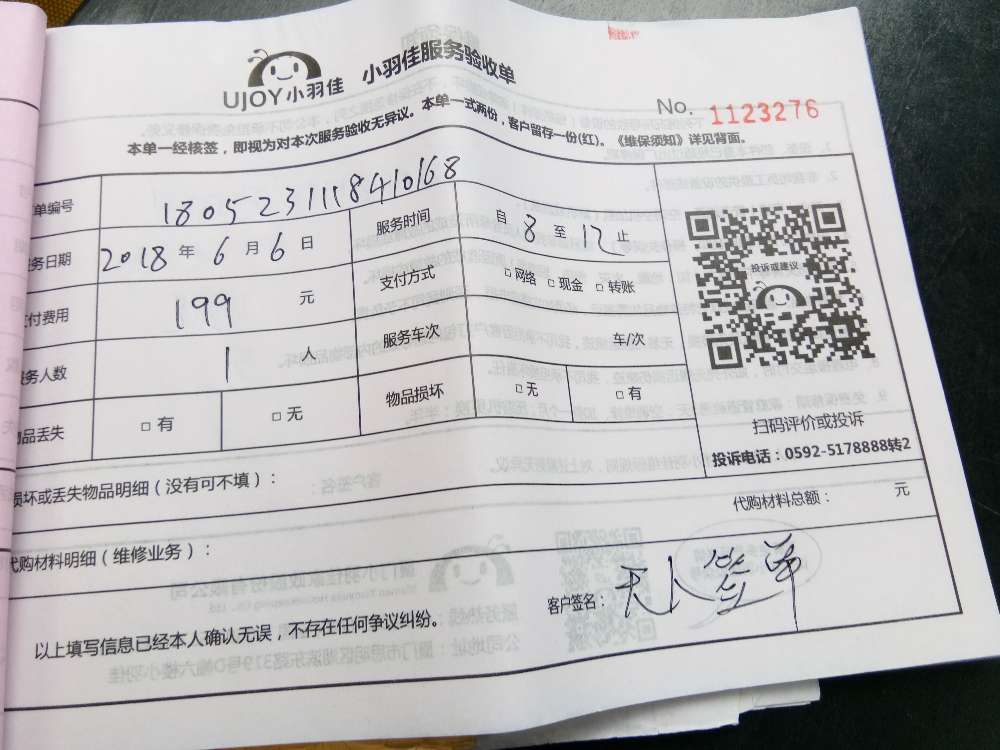 UJOY小羽佳 小羽佳服务验收单
No. 1123276
本单一经核签，即视为对本次服务验收无异议。本单一式两份，客户留存一份(红)。《维保须知》详见背面。
单编号 1805231118410168
务日期 2018 年 6 月 6 日 服务时间 自 8 至 12 止
付费用 199 元 支付方式 □网络 □现金 □转账
务人数 1 人 服务车次 车/次
品丢失 □有 □无 物品损坏 □无 □有
投诉或建议
扫码评价或投诉
投诉电话：0592-5178888转2
损坏或丢失物品明细（没有可不填）：
代购材料总额： 元
代购材料明细（维修业务）：
以上填写信息已经本人确认无误，不存在任何争议纠纷。
客户签名：